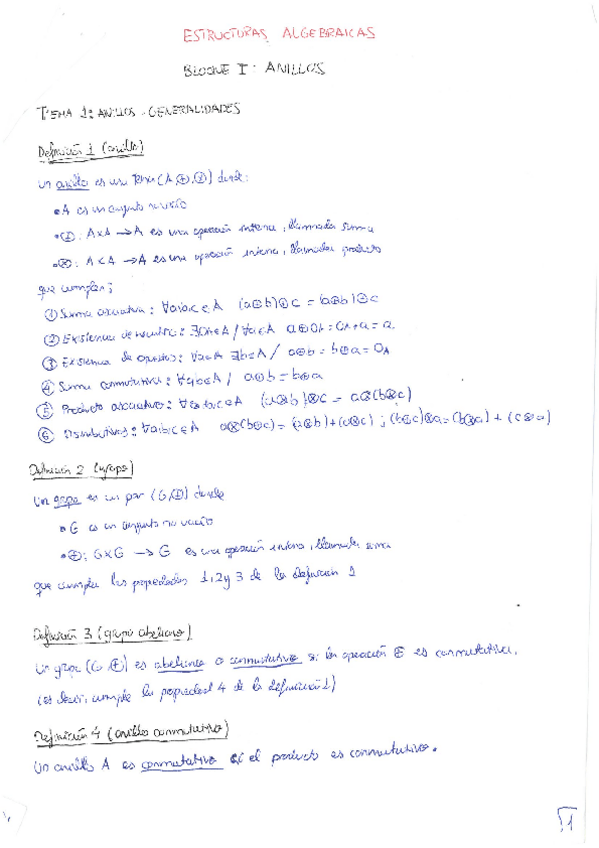 ESTRUCTURAS ALGEBRAICAS
BLOQUE I: ANILLOS
TEMA 1: ANILLOS - GENERALIDADES
Definición 1 (anillo)
Un anillo es una terna (A,⊕,⊗) donde:
• A es un conjunto no vacío
• ⊕: A×A → A es una operación interna, llamada suma
• ⊗: A×A → A es una operación interna, llamada producto
que cumplen:
① Suma asociativa: ∀a,b,c∈A (a⊕b)⊕c = a⊕(b⊕c)
② Existencia de neutro: ∃0A∈A / ∀a∈A a⊕0A = 0A+a = a.
③ Existencia de opuesto: ∀a∈A ∃b∈A / a⊕b = b⊕a = 0A
④ Suma conmutativa: ∀a,b∈A / a⊕b = b⊕a
⑤ Producto asociativo: ∀a,b,c∈A (a⊗b)⊗c = a⊗(b⊗c)
⑥ Distributivas: ∀a,b,c∈A a⊗(b⊕c) = (a⊗b)+(a⊗c) ; (b⊕c)⊗a = (b⊗a) + (c⊗a)
Definición 2 (grupo)
Un grupo es un par (G,⊕) donde
• G es un conjunto no vacío
• ⊕: G×G → G es una operación interna, llamada suma
que cumple las propiedades 1,2 y 3 de la definición 1
Definición 3 (grupo abeliano)
Un grupo (G,⊕) es abeliano o conmutativo si la operación ⊕ es conmutativa,
(es decir, cumple la propiedad 4 de la definición 1)
Definición 4 (anillo conmutativo)
Un anillo A es conmutativo si el producto es conmutativo.
1